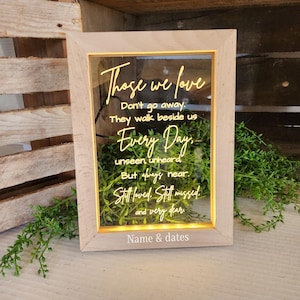 Those we love
Don't go away.
They walk beside us
Every Day,
unseen, unheard,
But always near.
Still loved, Still missed
and very dear
Name & dates